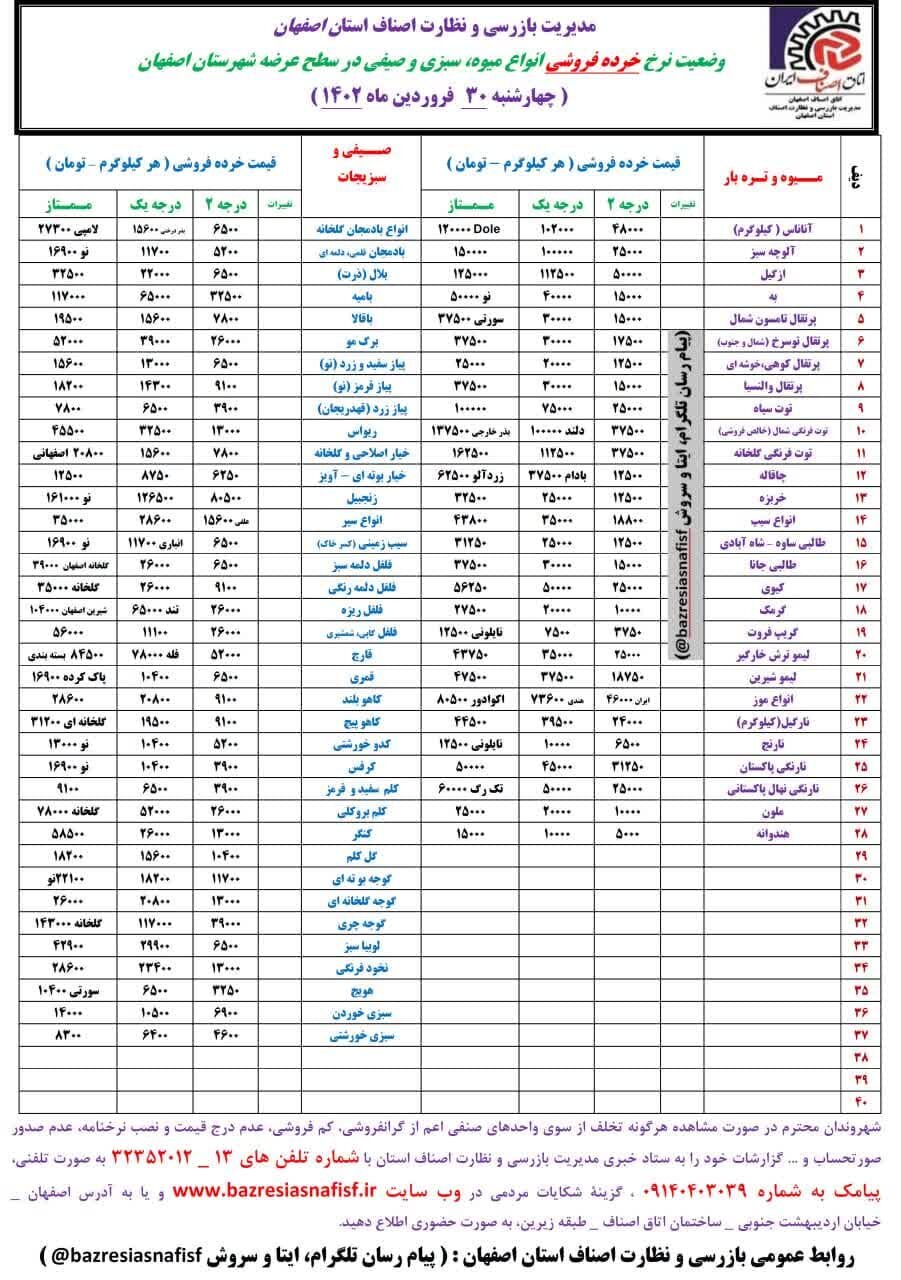 اتاق اصناف ایران
اتاق اصناف اصفهان
مدیریت بازرسی و نظارت اصناف
استان اصفهان
مدیریت بازرسی و نظارت اصناف استان اصفهان
وضعیت نرخ خرده فروشی انواع میوه، سبزی و صیفی در سطح عرضه شهرستان اصفهان
( چهارشنبه ۳۰ فروردین ماه ۱۴۰۲ )
دیف میـوه و تـره بار قیمت خرده فروشی ( هر کیلوگرم – تومان ) صـیفی و سبزیجات قیمت خرده فروشی ( هر کیلوگرم - تومان )
تغییرات درجه ۲ درجه یک مـمـتاز تغییرات درجه ۲ درجه یک مـمـتاز
۱ آناناس ( کیلوگرم) ۴۸۰۰۰ ۱۰۲۰۰۰ ۱۲۰۰۰۰ Dole انواع بادمجان گلخانه ۶۵۰۰ ۱۵۶۰۰ لامپی ۲۷۳۰۰
۲ آلوچه سبز ۲۵۰۰۰ ۱۰۰۰۰۰ ۱۵۰۰۰۰ بادمجان قلمی، دلمه ای ۵۲۰۰ ۱۱۷۰۰ نو ۱۶۹۰۰
۳ ازگیل ۵۰۰۰۰ ۱۱۲۵۰۰ ۱۲۵۰۰۰ بلال (ذرت) ۶۵۰۰ ۲۲۰۰۰ ۳۲۵۰۰
۴ به ۱۵۰۰۰ ۴۰۰۰۰ نو ۵۰۰۰۰ بامیه ۳۲۵۰۰ ۶۵۰۰۰ ۱۱۷۰۰۰
۵ پرتقال تامسون شمال ۱۵۰۰۰ ۳۰۰۰۰ سورتی ۳۷۵۰۰ باقالا ۷۸۰۰ ۱۵۶۰۰ ۱۹۵۰۰
۶ پرتقال توسرخ (شمال و جنوب) ۱۷۵۰۰ ۳۰۰۰۰ ۳۷۵۰۰ برگ مو ۲۶۰۰۰ ۳۹۰۰۰ ۵۲۰۰۰
۷ پرتقال کوهی،خوشه ای ۱۲۵۰۰ ۲۰۰۰۰ ۲۵۰۰۰ پیاز سفید و زرد (نو) ۶۵۰۰ ۱۳۰۰۰ ۱۵۶۰۰
۸ پرتقال والنسیا ۱۵۰۰۰ ۳۰۰۰۰ ۳۷۵۰۰ پیاز قرمز (نو) ۹۱۰۰ ۱۴۳۰۰ ۱۸۲۰۰
۹ توت سیاه ۲۵۰۰۰ ۷۵۰۰۰ ۱۰۰۰۰۰ پیاز زرد (قهدریجان) ۳۹۰۰ ۶۵۰۰ ۷۸۰۰
۱۰ توت فرنگی شمال (خالص فروشی) ۳۷۵۰۰ دلند ۱۰۰۰۰۰ بذر خارجی ۱۳۷۵۰۰ ریواس ۱۳۰۰۰ ۳۲۵۰۰ ۴۵۵۰۰
۱۱ توت فرنگی گلخانه ۳۷۵۰۰ ۱۱۲۵۰۰ ۱۶۲۵۰۰ خیار اصلاحی و گلخانه ۷۸۰۰ ۱۵۶۰۰ ۲۰۸۰۰ اصفهانی
۱۲ چاقاله ۱۲۵۰۰ بادام ۳۷۵۰۰ زردآلو ۶۲۵۰۰ خیار بوته ای – آویز ۶۲۵۰ ۸۷۵۰ ۱۲۵۰۰
۱۳ خربزه ۱۲۵۰۰ ۲۵۰۰۰ ۳۲۵۰۰ زنجبیل ۸۰۵۰۰ ۱۲۶۵۰۰ نو ۱۶۱۰۰۰
۱۴ انواع سیب ۱۸۸۰۰ ۳۵۰۰۰ ۴۳۸۰۰ انواع سیر ۱۵۶۰۰ ۲۸۶۰۰ ۳۵۰۰۰
۱۵ طالبی ساوه – شاه آبادی ۱۲۵۰۰ ۲۵۰۰۰ ۳۱۲۵۰ سیب زمینی (کسر خاک) ۶۵۰۰ انباری ۱۱۷۰۰ نو ۱۶۹۰۰
۱۶ طالبی جانا ۱۵۰۰۰ ۳۰۰۰۰ ۳۷۵۰۰ فلفل دلمه سبز ۶۵۰۰ ۲۶۰۰۰ گلخانه اصفهان ۳۹۰۰۰
۱۷ کیوی ۲۵۰۰۰ ۵۰۰۰۰ ۵۶۲۵۰ فلفل دلمه رنگی ۹۱۰۰ ۲۶۰۰۰ گلخانه ۳۵۰۰۰
۱۸ گرمک ۱۰۰۰۰ ۲۰۰۰۰ ۲۷۵۰۰ فلفل ریزه ۲۶۰۰۰ تند ۶۵۰۰۰ شیرین اصفهان ۱۰۴۰۰۰
۱۹ گریپ فروت ۳۷۵۰ ۷۵۰۰ نایلونی ۱۲۵۰۰ فلفل کاپی، شمشیری ۲۶۰۰۰ ۱۱۱۰۰ ۵۶۰۰۰
۲۰ لیمو ترش خارگیر ۲۵۰۰۰ ۳۵۰۰۰ ۴۳۷۵۰ قارچ ۵۲۰۰۰ فله ۷۸۰۰۰ ۸۴۵۰۰ بسته بندی
۲۱ لیمو شیرین ۱۸۷۵۰ ۳۷۵۰۰ ۴۷۵۰۰ قمری ۶۵۰۰ ۱۰۴۰۰ پاک کرده ۱۶۹۰۰
۲۲ انواع موز ایران ۴۶۰۰۰ هندی ۷۳۶۰۰ اکوادور ۸۰۵۰۰ کاهو بلند ۹۱۰۰ ۲۰۸۰۰ ۲۸۶۰۰
۲۳ نارگیل(کیلوگرم) ۲۴۰۰۰ ۳۹۵۰۰ ۴۴۵۰۰ کاهو پیچ ۹۱۰۰ ۱۹۵۰۰ گلخانه ای ۳۱۲۰۰
۲۴ نارنج ۶۵۰۰ ۱۰۰۰۰ نایلونی ۱۲۵۰۰ کدو خورشتی ۵۲۰۰ ۱۰۴۰۰ نو ۱۳۰۰۰
۲۵ نارنگی پاکستان ۳۱۲۵۰ ۴۵۰۰۰ ۵۰۰۰۰ کرفس ۳۹۰۰ ۱۰۴۰۰ نو ۱۶۹۰۰
۲۶ نارنگی نهال پاکستانی ۲۵۰۰۰ ۵۰۰۰۰ تک رک ۶۰۰۰۰ کلم سفید و قرمز ۳۹۰۰ ۶۵۰۰ ۹۱۰۰
۲۷ ملون ۱۰۰۰۰ ۲۰۰۰۰ ۲۵۰۰۰ کلم بروکلی ۲۶۰۰۰ ۵۲۰۰۰ گلخانه ۷۸۰۰۰
۲۸ هندوانه ۵۰۰۰ ۱۰۰۰۰ ۱۵۰۰۰ کنگر ۱۳۰۰۰ ۲۶۰۰۰ ۵۸۵۰۰
۲۹ گل کلم ۱۰۴۰۰ ۱۵۶۰۰ ۱۸۲۰۰
۳۰ گوجه بوته ای ۱۱۷۰۰ ۱۸۲۰۰ ۲۲۱۰۰نو
۳۱ گوجه گلخانه ای ۱۳۰۰۰ ۲۰۸۰۰ ۲۶۰۰۰
۳۲ گوجه چری ۳۹۰۰۰ ۱۱۷۰۰۰ گلخانه ۱۴۳۰۰۰
۳۳ لوبیا سبز ۶۵۰۰ ۲۹۹۰۰ ۴۲۹۰۰
۳۴ نخود فرنگی ۱۳۰۰۰ ۲۳۴۰۰ ۲۸۶۰۰
۳۵ هویج ۳۲۵۰ ۶۵۰۰ سورتی ۱۰۴۰۰
۳۶ سبزی خوردن ۶۹۰۰ ۱۰۵۰۰ ۱۴۰۰۰
۳۷ سبزی خورشتی ۴۶۰۰ ۶۴۰۰ ۸۳۰۰
۳۸
۳۹
۴۰
(پیام رسان تلگرام، ایتا و سروش bazresiasnafisf@)
شهروندان محترم در صورت مشاهده هرگونه تخلف از سوی واحدهای صنفی اعم از گرانفروشی، کم فروشی، عدم درج قیمت و نصب نرخنامه، عدم صدور
صورتحساب و ... گزارشات خود را به ستاد خبری مدیریت بازرسی و نظارت اصناف استان با شماره تلفن های ۱۳ _ ۳۲۳۵۲۰۱۲ به صورت تلفنی،
پیامک به شماره ۰۹۱۴۰۴۰۳۰۳۹ ، گزینهٔ شکایات مردمی در وب سایت www.bazresiasnafisf.ir و یا به آدرس اصفهان _
خیابان اردیبهشت جنوبی _ ساختمان اتاق اصناف _ طبقه زیرین، به صورت حضوری اطلاع دهید.
روابط عمومی بازرسی و نظارت اصناف استان اصفهان : ( پیام رسان تلگرام، ایتا و سروش bazresiasnafisf@ )